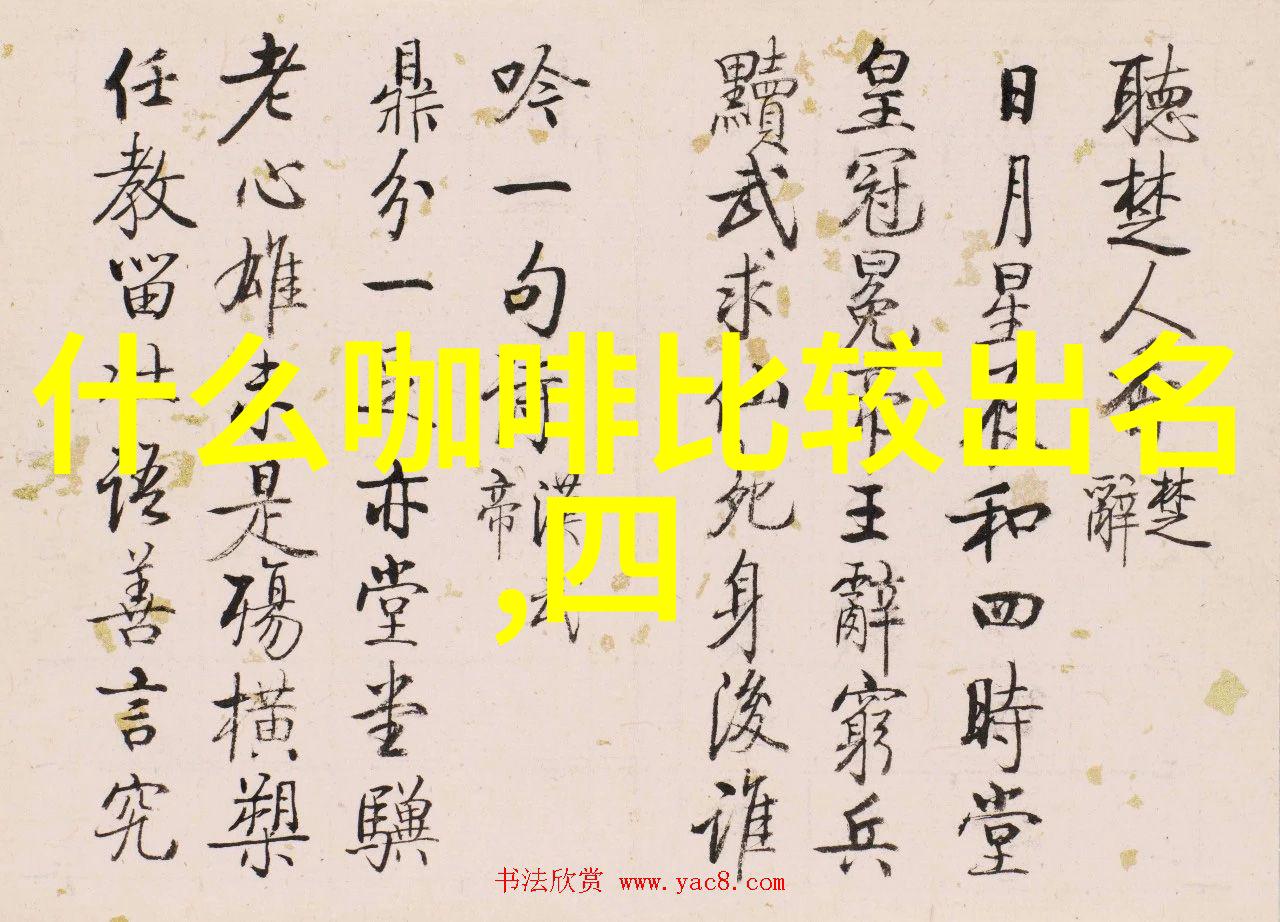 聽楚人 楚辭
日月星辰和四時堂
皇冠冕帝王辭窮兵
黷武求仙死身後誰
吟一句 漢武帝
鼎分一足亦堂堂驥
老心雄未是殤橫槊
任教留世語善言究
什么咖啡比较出名
,四
书法欣赏 www.yac8.com